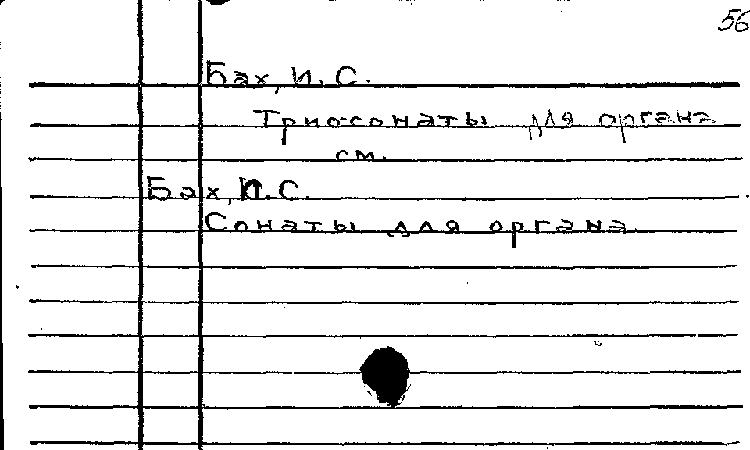 56
Бах, И. С.
Трио-сонаты для органа
см.
Бах, И. С.
Сонаты для органа